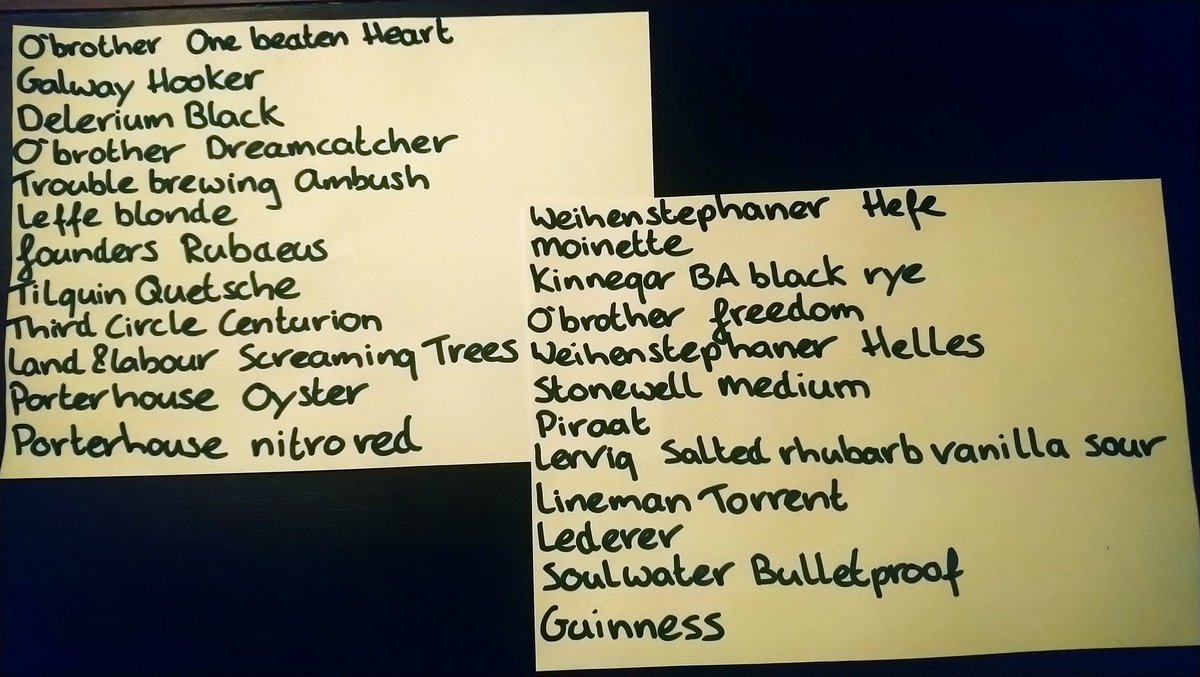 O'brother One beaten Heart
Galway Hooker
Delerium Black
O'brother Dreamcatcher
Trouble brewing Ambush
Leffe blonde
founders Rubaeus
Tilquin Quetsche
Third Circle Centurion
Land & labour Screaming Trees
Porterhouse Oyster
Porterhouse nitro red
Weihenstephaner Hefe
moinette
Kinnegar BA black rye
O'brother freedom
Weihenstephaner Helles
Stonewell medium
Piraat
Lervig Salted rhubarb vanilla sour
Lineman Torrent
Lederer
Soulwater Bulletproof
Guinness